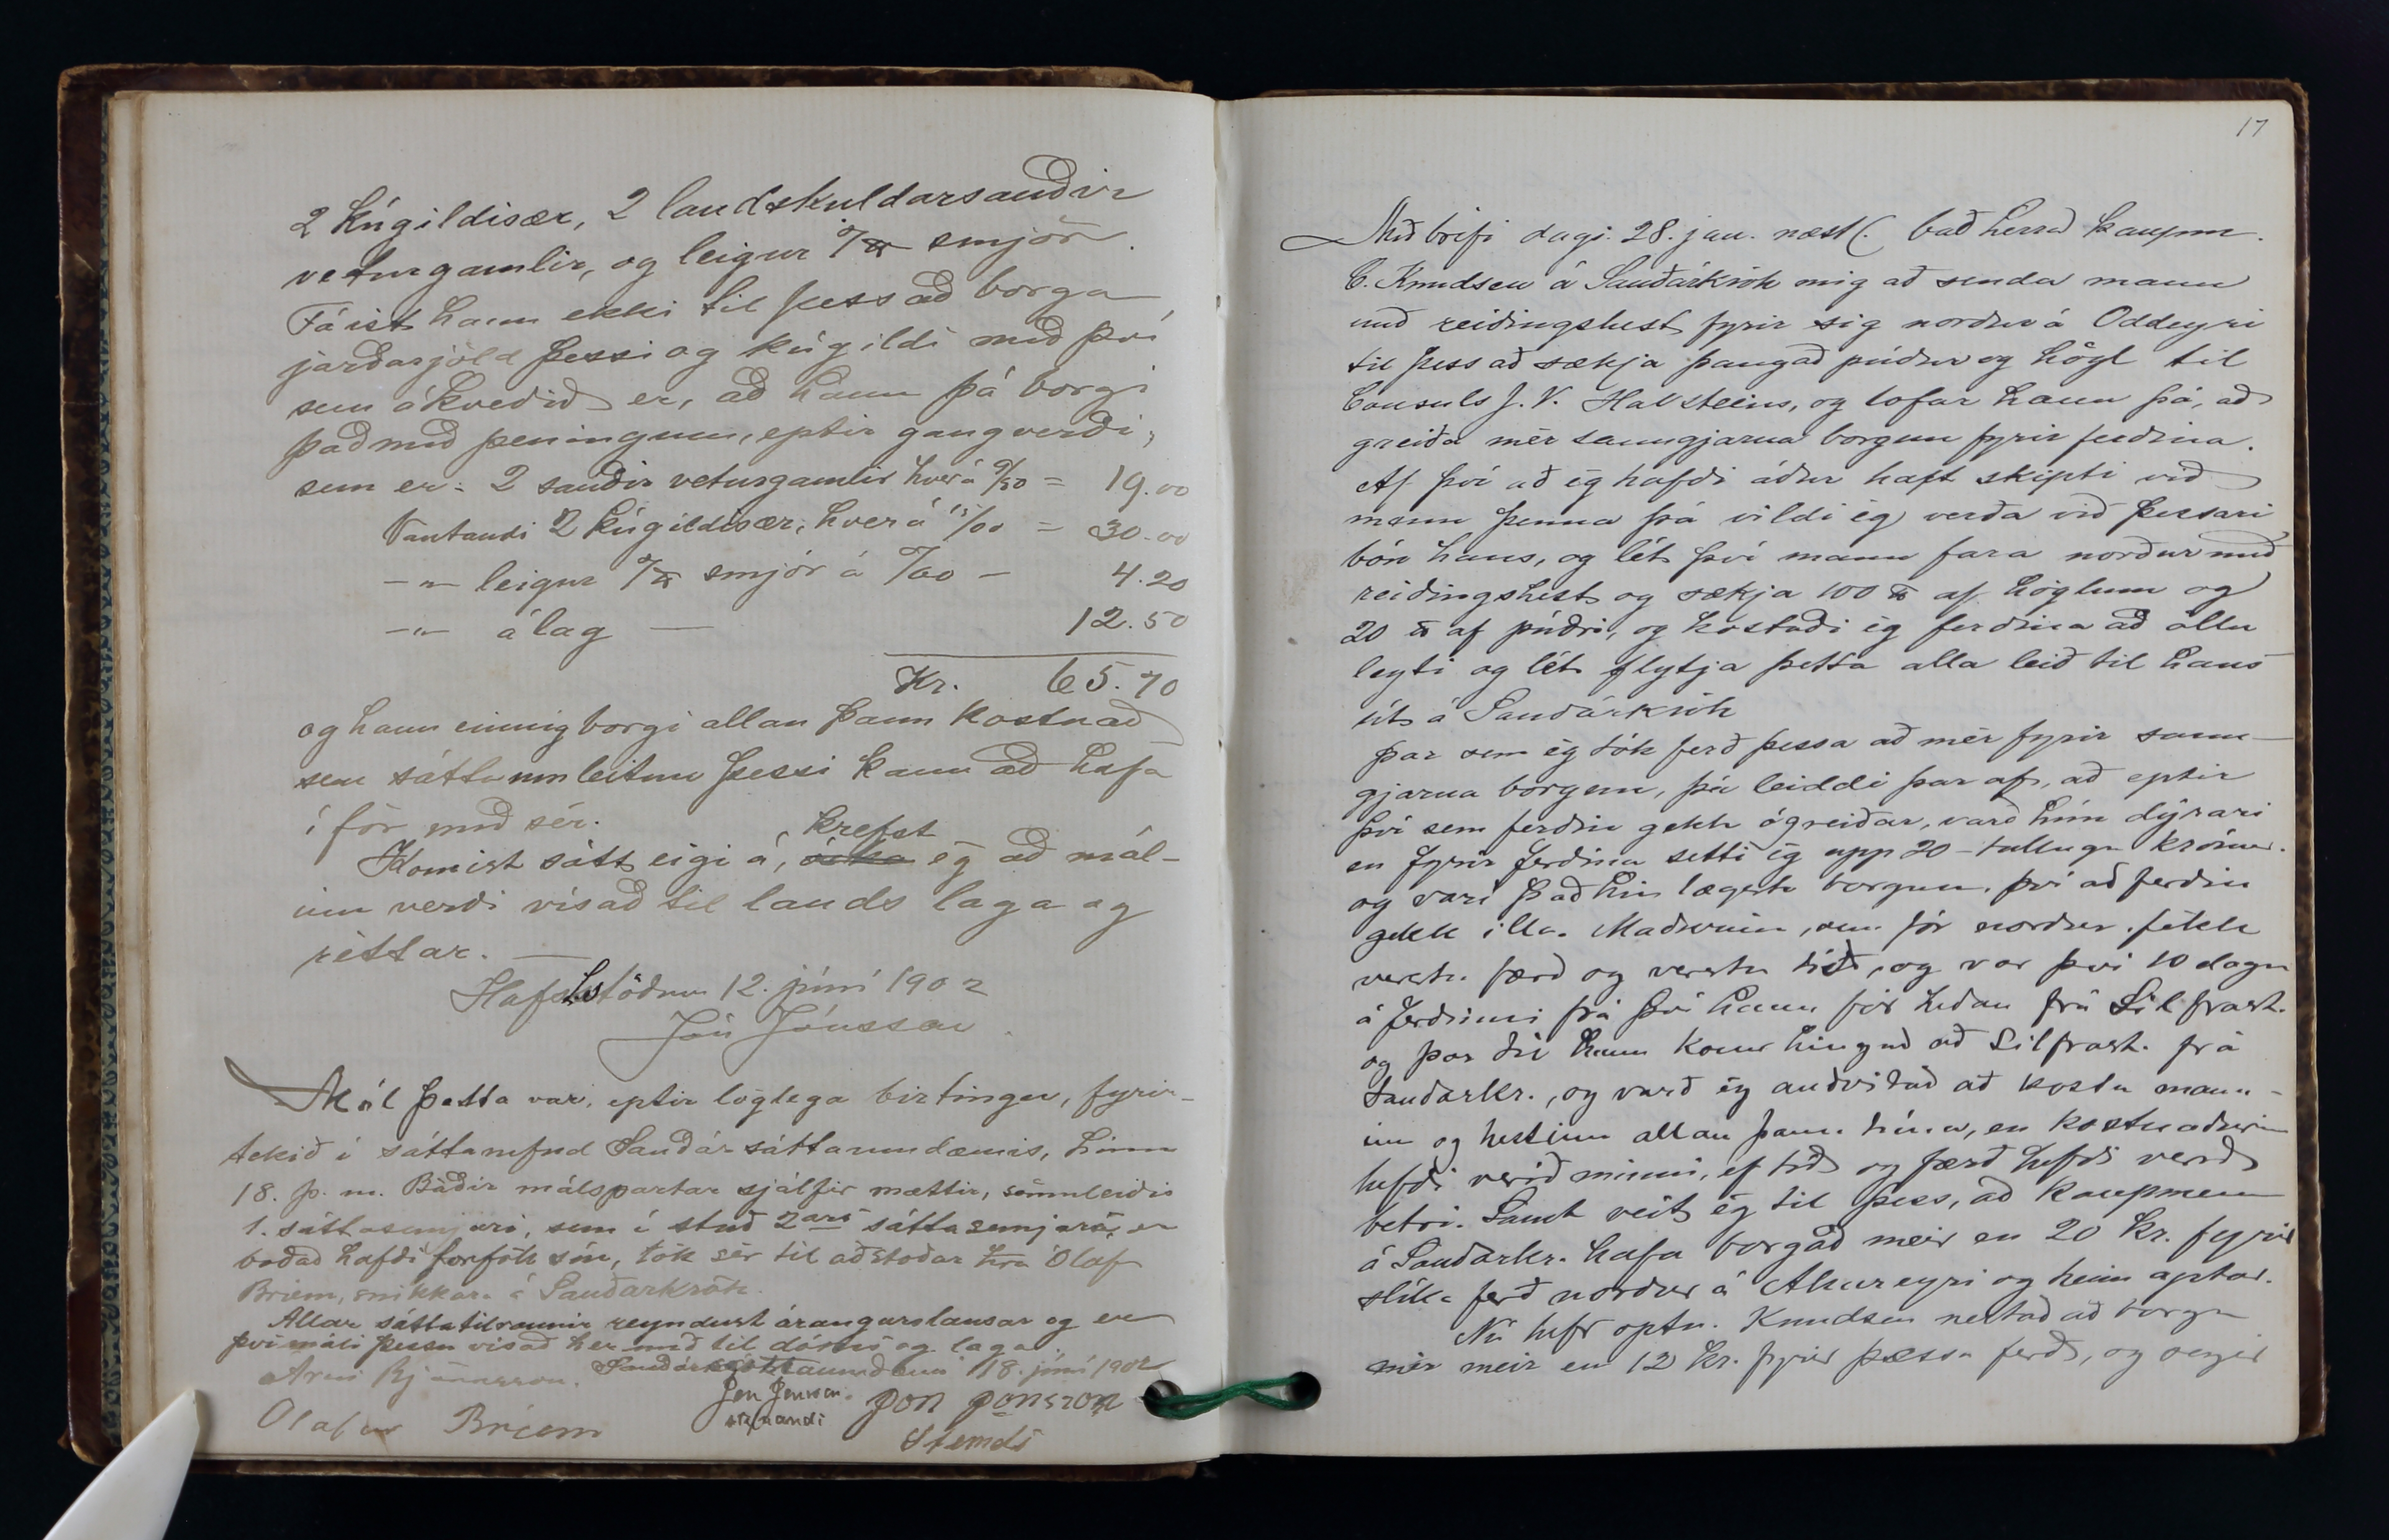 2 kúgildisær, 2 landskuldarsauðir
veturgamlir, og leigur 7 ℔ smjör.
Fáist hann ekki til þess að borga
jarðargjöld þessi og kúgildi með því
sem ákveðið er, að hann þá borgi
það með peningum, eptir gangverði,
sem er: 2 sauðir veturgamlir hver á 9/50 = 19.00
Vantandi 2 kúgildisær, hver á 15/00 = 30.00
-„- leigur 7 ℔ smjör á /60 - 4.20
-„- álag — 12.50
Kr. 65.70
og hann einnig borgi allan þann kostnað
sem sáttaumleitun þessi kann að hafa
í för með sér.
Komist sátt eigi á, krefst ég að mál-
inu verði vísað til lands laga og
réttar. —
Hafsteinsstöðum 12. júní 1902
Jón Jónsson.
Mál þetta var, eptir löglega birtingu, fyrir-
tekið í sáttanefnd Sauðár sáttaumdæmis, hinn
18. þ. m. Báðir málspartar sjálfir mættir, sömuleiðis
1. sáttasemjari, sem í stað 2ars sáttasemjara, er
boðað hafði forföll sín, tók sér til aðstoðar hra Ólaf
Briem, snikkara á Sauðárkrók.
Allar sáttatilraunir reyndust árangurslausar og er
því máli þessu vísað hér með til dóms og laga.
18. júní 1902
Árni Björnsson. Jón Jónsson Jón Jónsson
Olafur Briem stefnandi Stemdi
17
Með brefi dags. 28. jan. næstl. bað herra kaupm.
C. Knudsen á Sauðárkrók mig að senda mann
með reiðingshest fyrir sig norður á Oddeyri
til þess að sækja þangað púður og högl til
Consuls J. V. Havsteins, og lofar hann þá, að
greiða mér sanngjarna borgun fyrir ferðina.
Af því að ég hafði áður haft skipti við
mann þenna þá vildi ég verða við þessari
bón hans, og lét því mann fara norður með
reiðingshest og sækja 100 ℔ af höglum og
20 ℔ af púðri, og kostaði ég ferðina að öllu
leyti og lét flytja þetta alla leið til hans
út á Sauðárkrók
Þar sem ég tók ferð þessa að mér fyrir sann-
gjarna borgun, þá leiddi þar af, að eptir
því sem ferðin gekk ógreiðar, varð hún dýrari
en fyrir ferðina setti ég upp 20 - tuttugu krónur.
og var það hin lægsta borgun, því að ferðin
gekk illa. Maðurinn, sem fór norður, fékk
verstu færð og verstu tíð, og var því 10 daga
á ferðinni frá því hann fór héðan frá Silfrast.
og þar til hann komur hingað að Silfrast. frá
Sauðárkr., og varð ég auðvitað að kosta mann-
inn og hestinn allan þann tíma, en kostnaðurinn
hefði verið minni, ef tíð og færð hefði verið
betri. Samt veit ég til þess, að kaupmenn
á Sauðárkr. hafa borgað meir en 20 kr. fyrir
slíka ferð norður á Akureyri og heim aptur.
Nú hefr optn. Knudsen neitað að borga
mér meir en 12 kr. fyrir þessa ferð, og segir